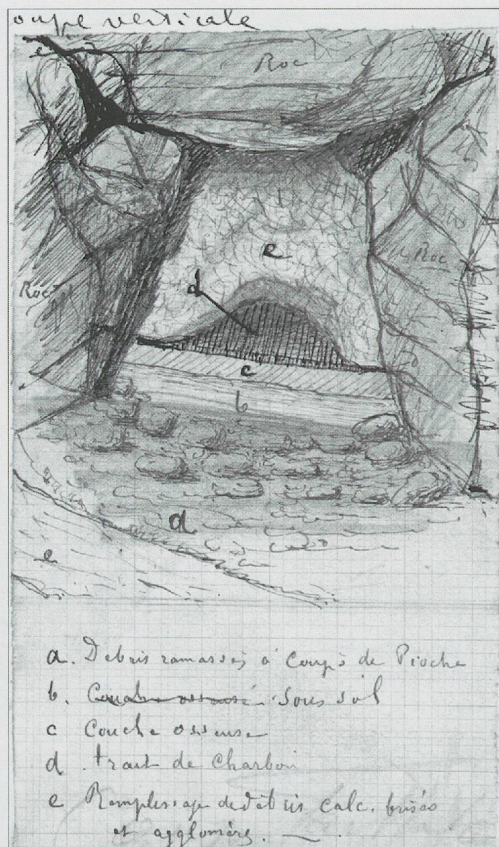 oupe verticale
e
Roc
e
d
Roc
Roc
c
b
d
e
a. Débris ramassés à Coups de Pioche
b. Couche osseuse sous sol
c Couche osseuse
d trait de Charbon
e Remplissage de débris calc. brisés
et agglomérés.